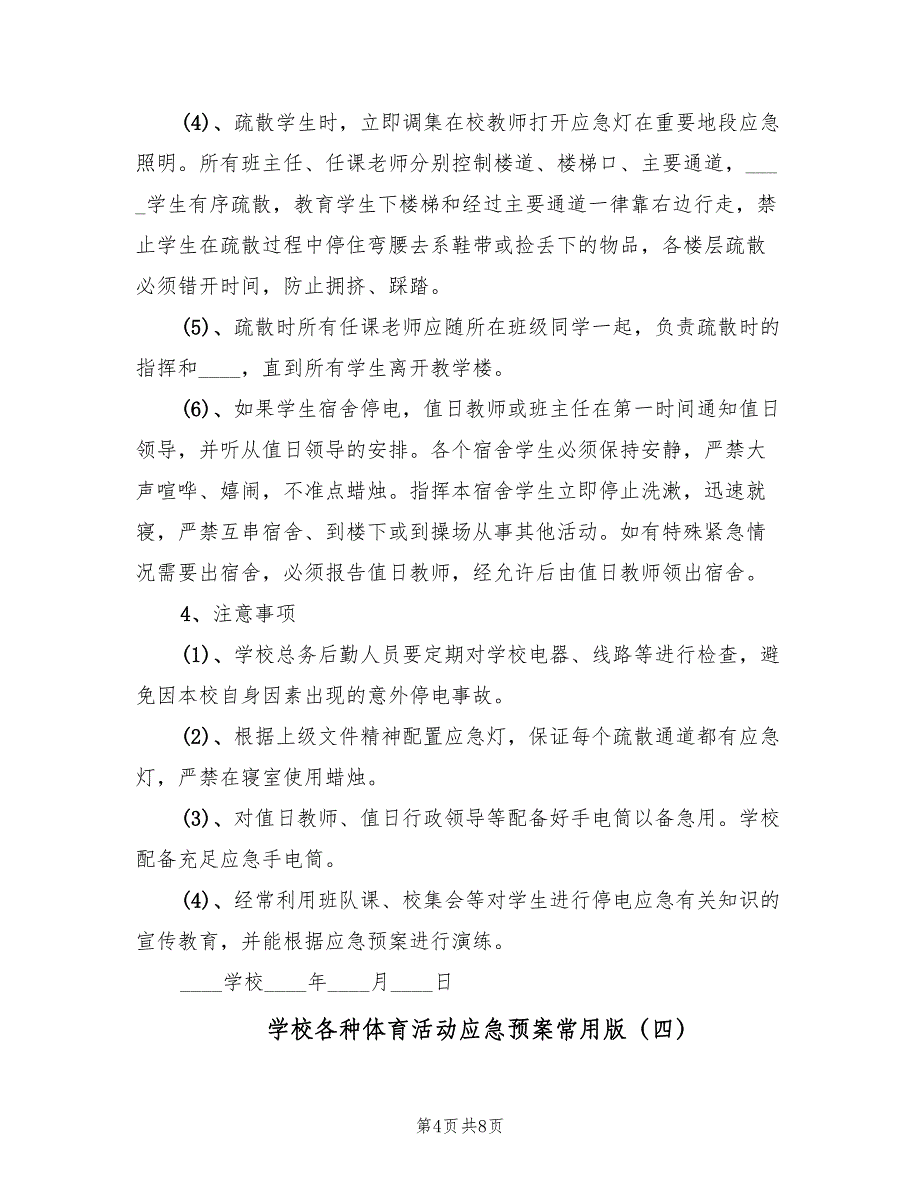 (4)、疏散学生时，立即调集在校教师打开应急灯在重要地段应急
照明。所有班主任、任课老师分别控制楼道、楼梯口、主要通道，___
_学生有序疏散，教育学生下楼梯和经过主要通道一律靠右边行走，禁
止学生在疏散过程中停住弯腰去系鞋带或捡丢下的物品，各楼层疏散
必须错开时间，防止拥挤、踩踏。
(5)、疏散时所有任课老师应随所在班级同学一起，负责疏散时的
指挥和____，直到所有学生离开教学楼。
(6)、如果学生宿舍停电，值日教师或班主任在第一时间通知值日
领导，并听从值日领导的安排。各个宿舍学生必须保持安静，严禁大
声喧哗、嬉闹，不准点蜡烛。指挥本宿舍学生立即停止洗漱，迅速就
寝，严禁互串宿舍、到楼下或到操场从事其他活动。如有特殊紧急情
况需要出宿舍，必须报告值日教师，经允许后由值日教师领出宿舍。
4、注意事项
(1)、学校总务后勤人员要定期对学校电器、线路等进行检查，避
免因本校自身因素出现的意外停电事故。
(2)、根据上级文件精神配置应急灯，保证每个疏散通道都有应急
灯，严禁在寝室使用蜡烛。
(3)、对值日教师、值日行政领导等配备好手电筒以备急用。学校
配备充足应急手电筒。
(4)、经常利用班队课、校集会等对学生进行停电应急有关知识的
宣传教育，并能根据应急预案进行演练。
____学校____年____月____日
学校各种体育活动应急预案常用版（四）
第4页 共8页